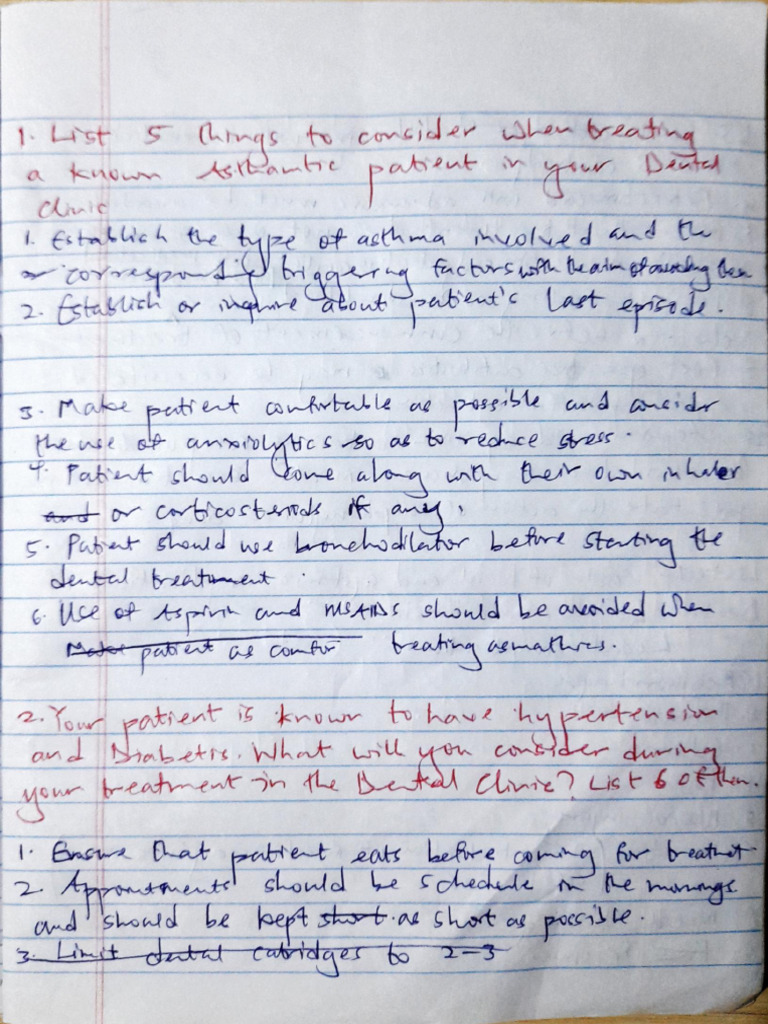 1. List 5 things to consider when treating
a known Asthamtic patient in your Dental
Clinic
1. Establish the type of asthma involved and the
corresponding triggering factors with the aim of avoiding them
2. Establish or inquire about patient's last episode.
3. Make patient comfortable as possible and consider
the use of anxiolytics so as to reduce stress.
4. Patient should come along with their own inhaler
and or corticosteriods if any.
5. Patient should use bronchodilator before starting the
dental treatment.
6. Use of Aspirin and NSAIDs should be avoided when
Make patient as comfor treating asmathics.
2. Your patient is known to have hypertension
and Diabetis. What will you consider during
your treatment in the Dental Clinic? List 6 of them.
1. Ensure that patient eats before coming for treatmet
2. Appointments should be schedule in the mornings.
and should be kept short as short as possible.
3. Limit dental catridges to 2-3